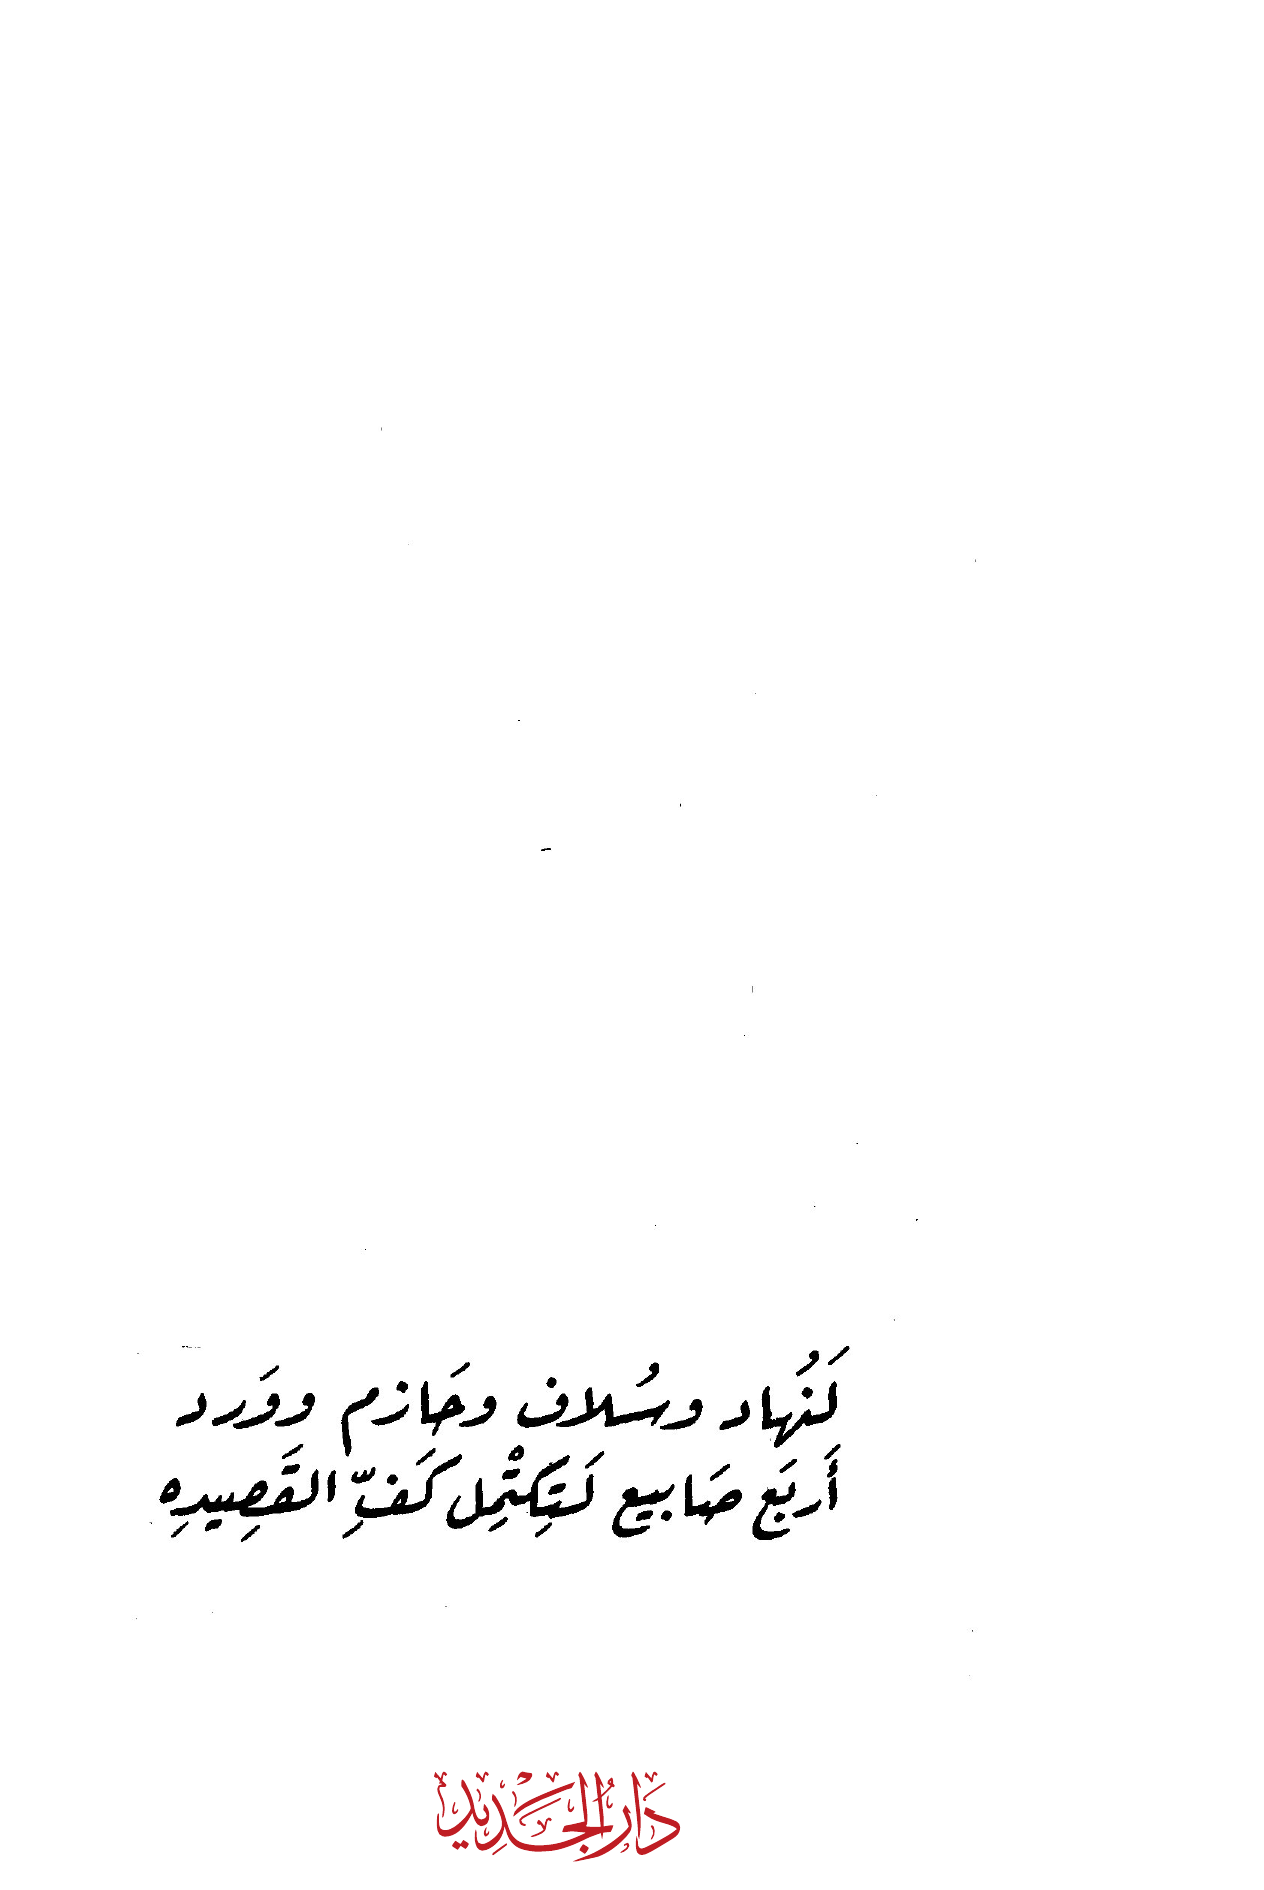 لَنُهاد وسُلاف وحَازم ووَرد
أَربَع صَابيع لَتِكتْمِل كَفِّ القَصِيدِه
دَارُ الجَدِيْد